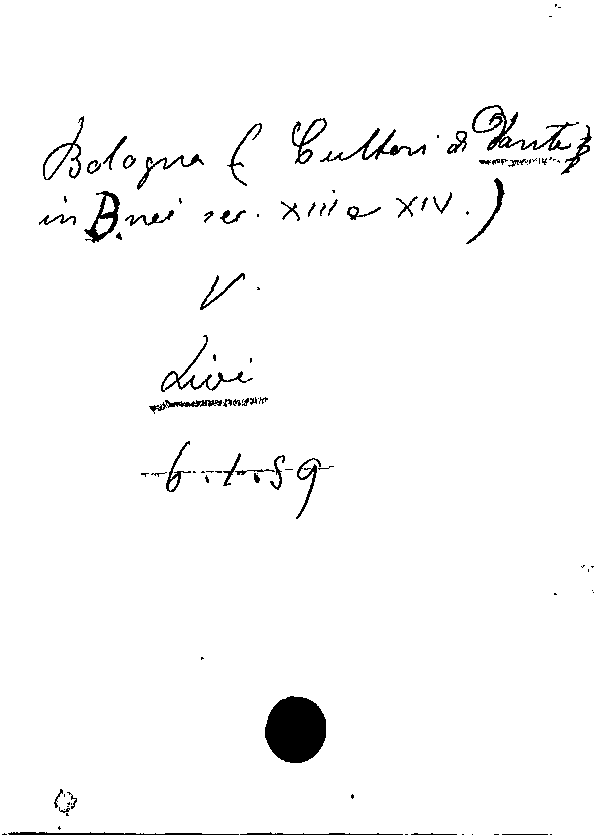 Bologna ( Cultori di Dante
in B. nei sec. XIII e XIV. )
V.
Livi
6.1.59